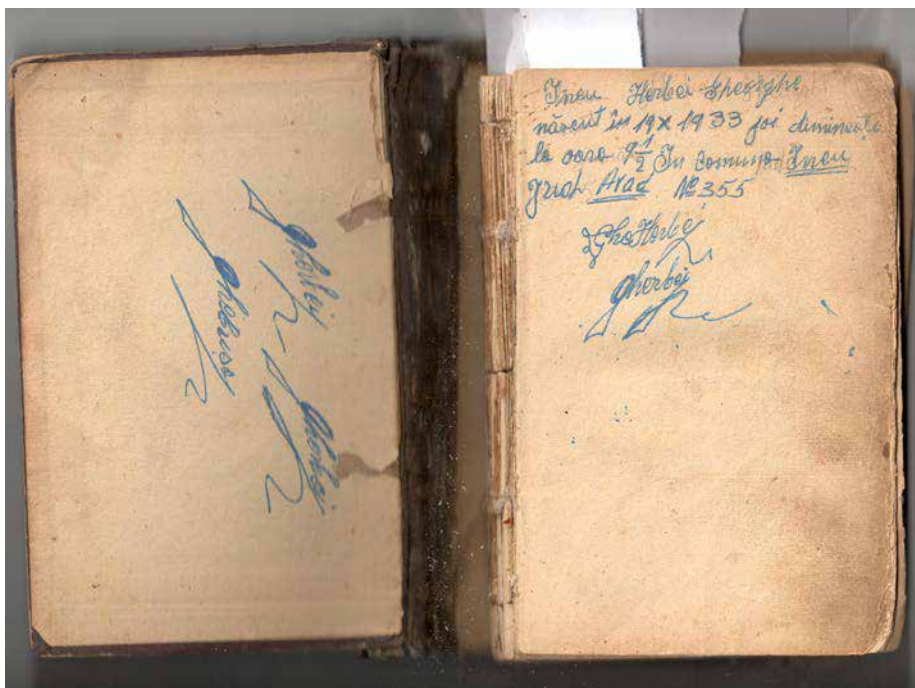 Gherbej
Gherbej
Ineu Herbei Gheorghe
născut în 19 X 1933 joi dimineața
la oara 9 1/2 In comuna Ineu
Jud. Arad № 355
Gherbej